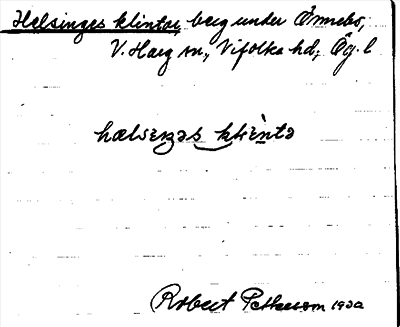 Helsinges klintar, berg under Önnebo,
V. Harg sn., Vifolka hd., Ög. l
hælsɛŋəs klɛ̀ntə
Robert Petterson 1930